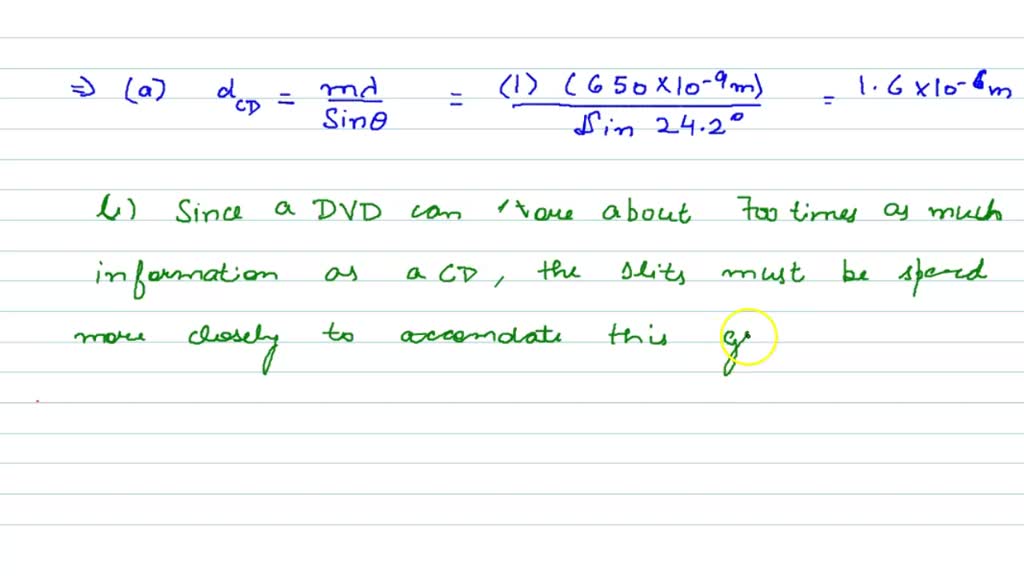 ⇒ (a) d_CD = mλ / Sinθ = (1) (650 × 10^-9 m) / Sin 24.2° = 1.6 × 10^-6 m
b) Since a DVD can store about 700 times as much
information as a CD, the slits must be spaced
more closely to accomdate this